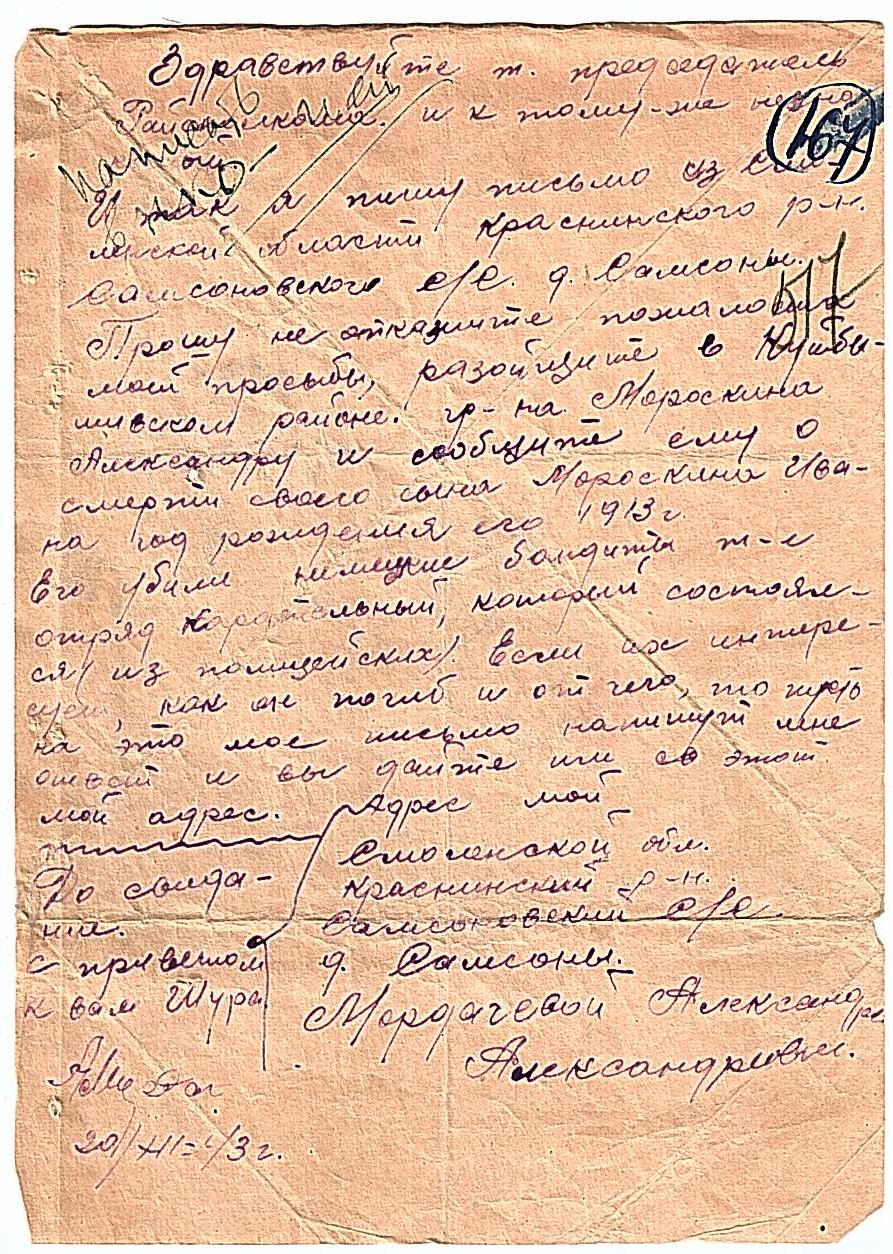 Здравствуйте т. председатель
Райисполкома. и к тому-же незна
ый
Итак я пишу письмо из Смо-
ленской области Краснинского р-н.
Самсоновского С/С. д. Самсоны.
Прошу не откажите пожалоста
моей прозьбы, разойщите в Куйбы-
шивском районе. гр-на. Мороскина
Александру и сообщите ему о
смерти своего сына Мороскина Ива-
на год рождения его 1913 г.
Его убили немецкие бандиты т-е
отряд карательный, который состоял-
ся (из полицейских). Если их интере-
сует, как он погиб и от чего, то пусть
на это мое письмо напишут мне
ответ и вы дайте им св этот
мой адрес. Адрес мой
Смоленской обл.
Краснинский р-н.
Самсоновский С/С.
д. Самсоны.
Мордачевой Александре
Александровны.
До свида-
ния.
с приветом
к вам Шура
20/XII-43 г.
написать
167
517